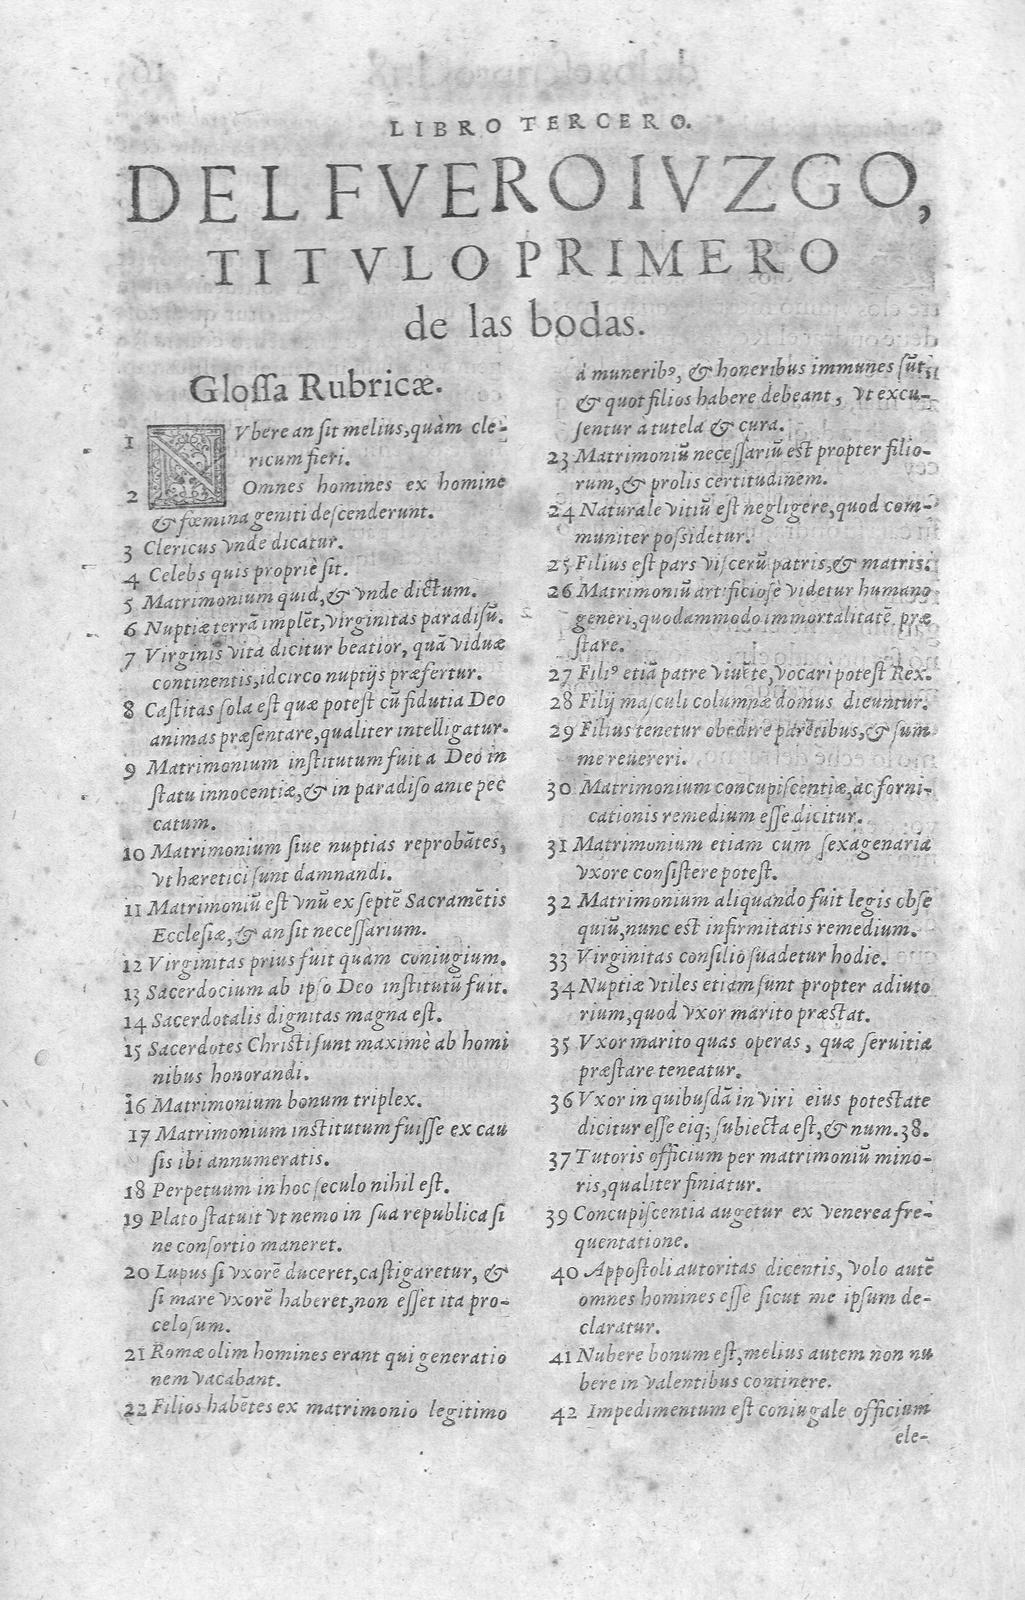 LIBRO TERCERO.
DEL FVERO IVZGO,
TITVLO PRIMERO
de las bodas.
Glossa Rubricæ.
1 NVbere an sit melius, quàm cle-
ricum fieri.
2 Omnes homines ex homine
& fœmina geniti descenderunt.
3 Clericus vnde dicatur.
4 Celebs quis propriè sit.
5 Matrimonium quid, & vnde dictum.
6 Nuptiæ terrã implẽt, virginitas paradisũ.
7 Virginis vita dicitur beatior, quã viduæ
continentis, idcirco nuptijs præfertur.
8 Castitas sola est quæ potest cũ fidutia Deo
animas præsentare, qualiter intelligatur.
9 Matrimonium institutum fuit a Deo in
statu innocentiæ, & in paradiso ante pec
catum.
10 Matrimonium siue nuptias reprobãtes,
vt hæretici sunt damnandi.
11 Matrimoniũ est vnũ ex septẽ Sacramẽtis
Ecclesiæ, & an sit necessarium.
12 Virginitas prius fuit quàm coniugium.
13 Sacerdocium ab ipso Deo institutũ fuit.
14 Sacerdotalis dignitas magna est.
15 Sacerdotes Christi sunt maximè ab homi
nibus honorandi.
16 Matrimonium bonum triplex.
17 Matrimonium institutum fuisse ex cau
sis ibi annumeratis.
18 Perpetuum in hoc seculo nihil est.
19 Plato statuit vt nemo in sua republica si
ne consortio maneret.
20 Lupus si vxorẽ duceret, castigaretur, &
si mare vxorẽ haberet, non esset ita pro-
celosum.
21 Romæ olim homines erant qui generatio
nem vacabant.
22 Filios habẽtes ex matrimonio legitimo
à munerib⁹, & honeribus immunes sũt,
& quot filios habere debeant, vt excu-
sentur a tutela & cura.
23 Matrimoniũ necessariũ est propter filio-
rum, & prolis certitudinem.
24 Naturale vitiũ est negligere, quod com-
muniter possidetur.
25 Filius est pars viscerũ patris, & matris.
26 Matrimoniũ artificiosè videtur humano
generi, quodammodo immortalitatẽ præ
stare.
27 Fili⁹ etiã patre viuẽte, vocari potest Rex.
28 Filij masculi columnæ domus dicuntur.
29 Filius tenetur obedire parẽtibus, & sum
me reuereri.
30 Matrimonium concupiscentiæ, ac forni-
cationis remedium esse dicitur.
31 Matrimonium etiam cum sexagenaria
vxore consistere potest.
32 Matrimonium aliquando fuit legis obse
quiũ, nunc est infirmitatis remedium.
33 Virginitas consilio suadetur hodie.
34 Nuptiæ vtiles etiam sunt propter adiuto
rium, quod vxor marito præstat.
35 Vxor marito quas operas, quæ seruitia
præstare teneatur.
36 Vxor in quibusdã in viri eius potestate
dicitur esse eiq; subiecta est, & num. 38.
37 Tutoris officium per matrimoniũ mino-
ris, qualiter finiatur.
39 Concupiscentia augetur ex venerea fre-
quentatione.
40 Appostoli autoritas dicentis, volo autẽ
omnes homines esse sicut me ipsum de-
claratur.
41 Nubere bonum est, melius autem non nu
bere in valentibus continere.
42 Impedimentum est coniugale officium
ele-